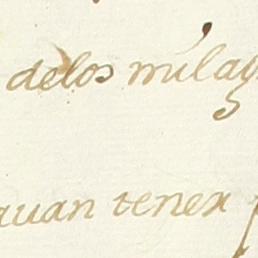 delos milag
auan tener